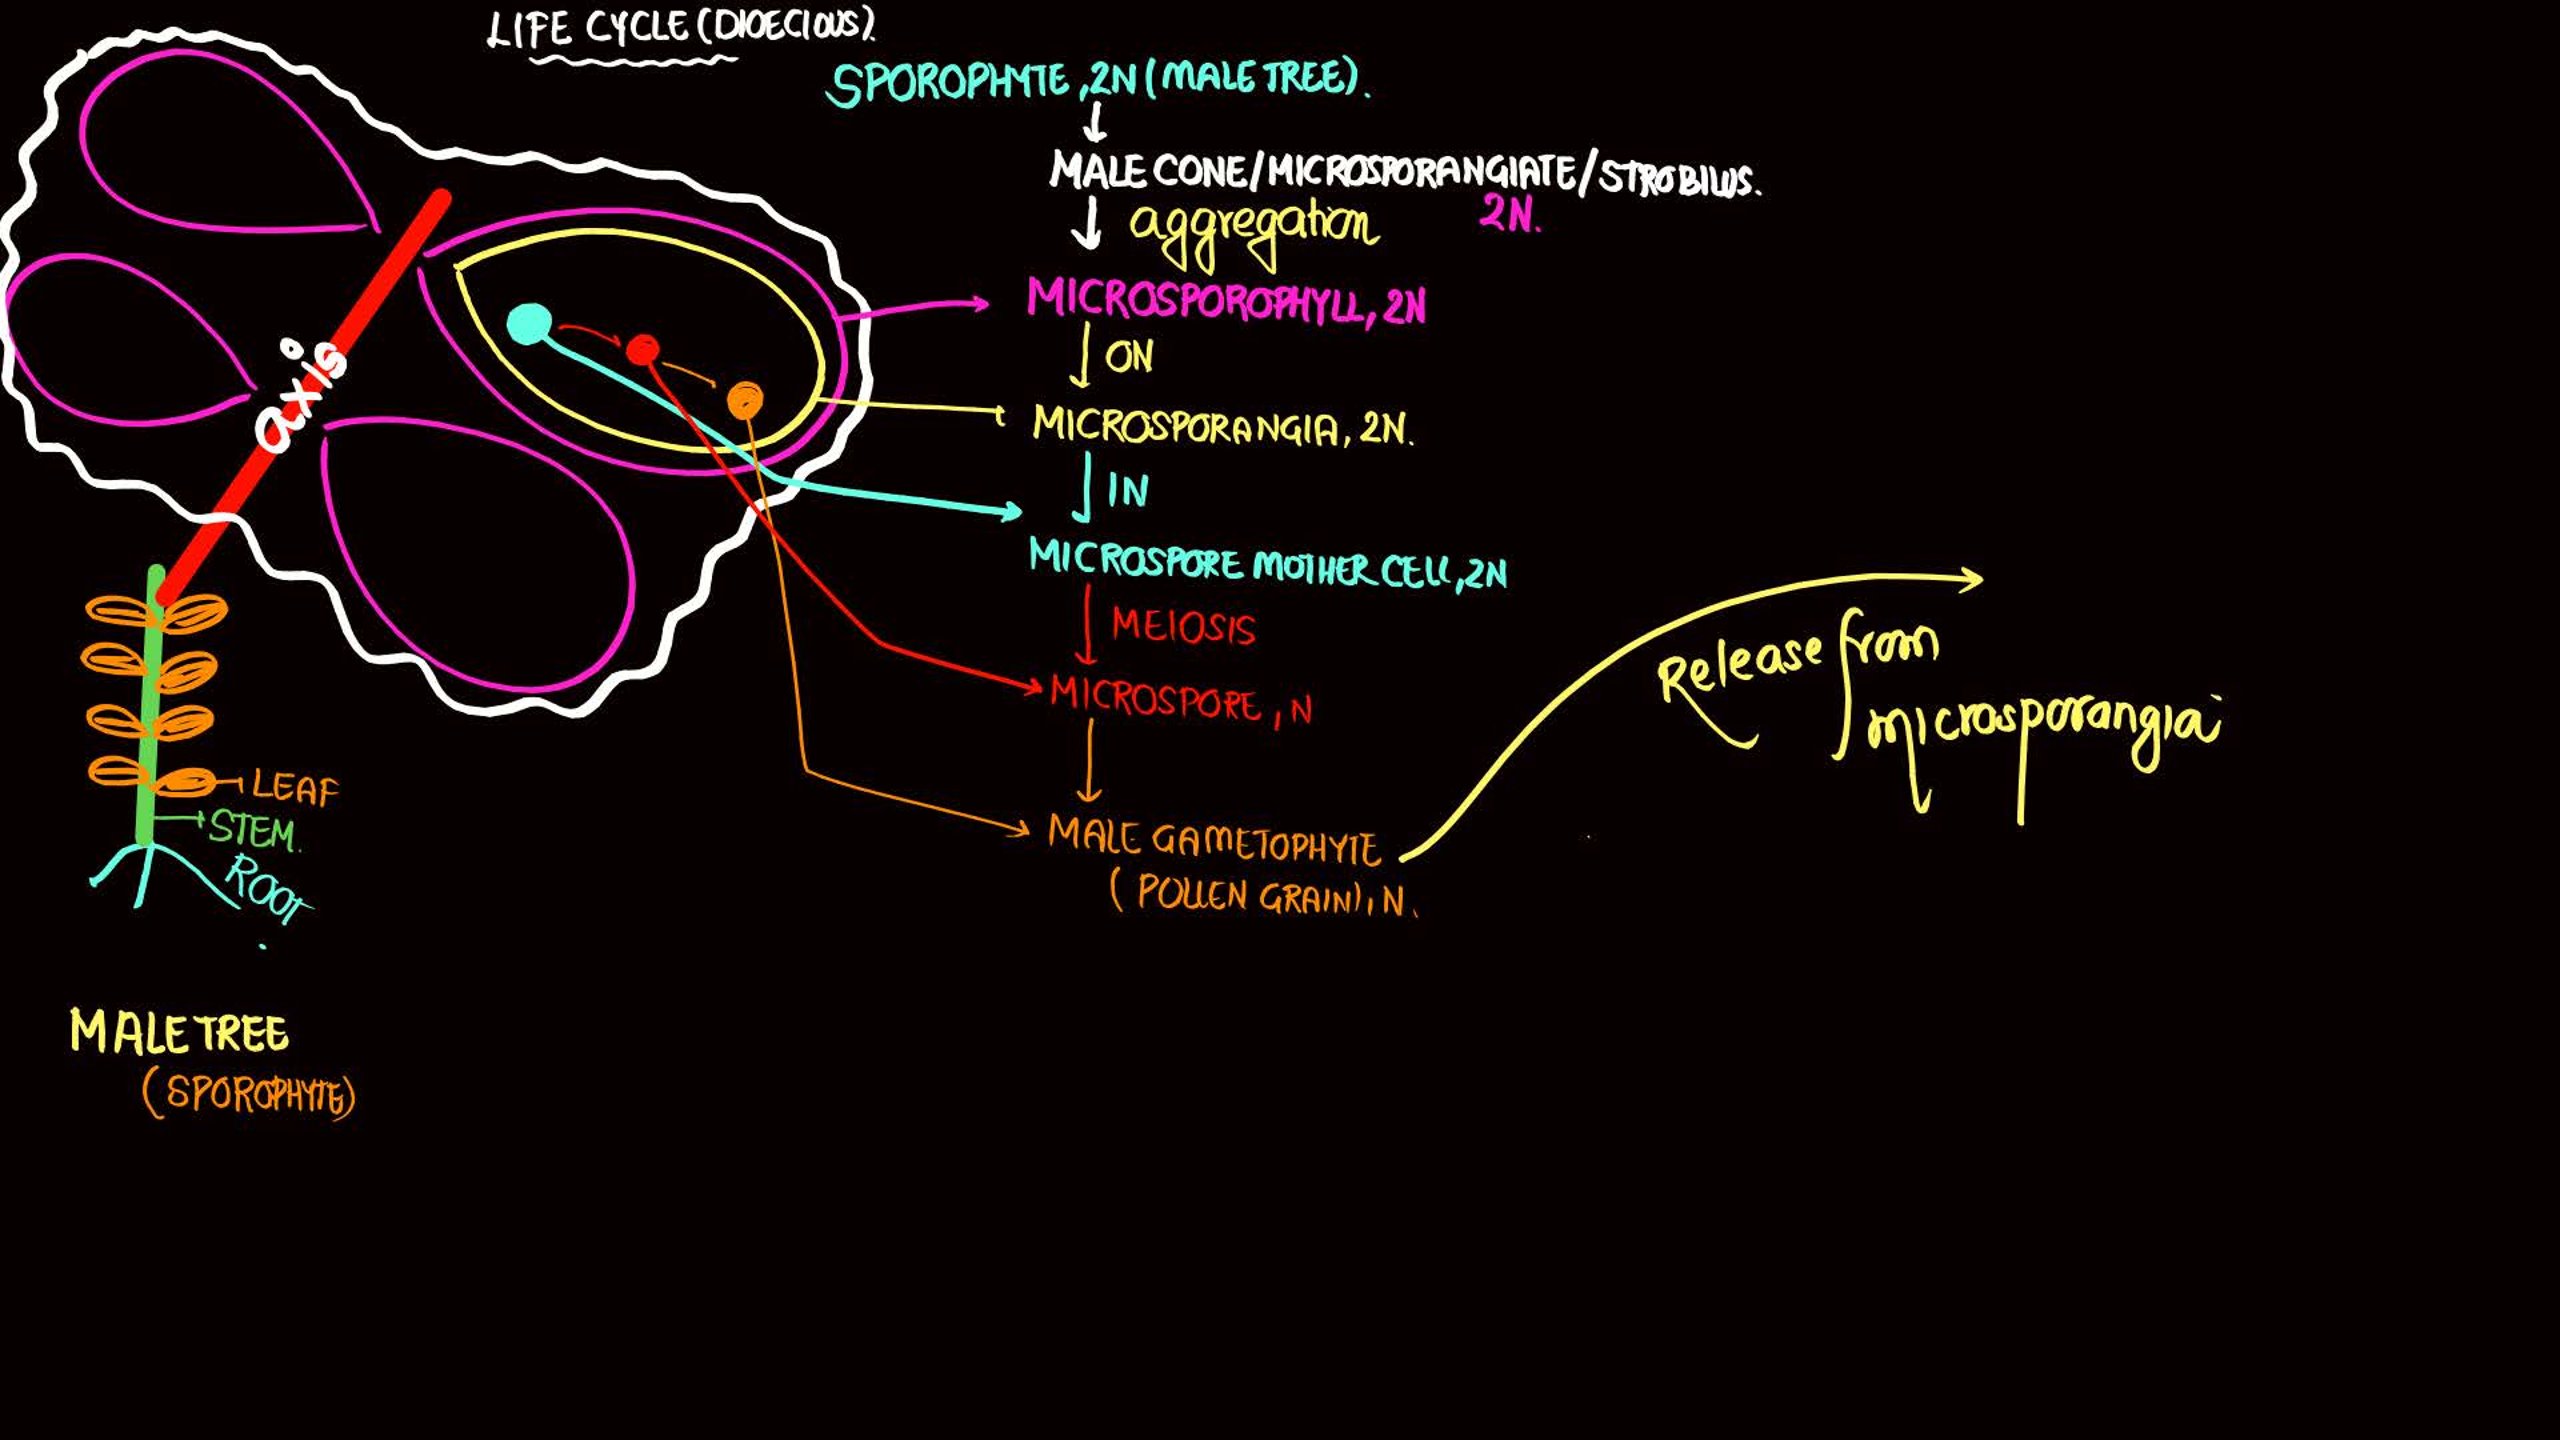 LIFE CYCLE (DIOECIOUS).
SPOROPHYTE, 2N (MALE TREE).
MALE CONE/MICROSPORANGIATE/STROBILUS.
aggregation
2N.
MICROSPOROPHYLL, 2N
ON
MICROSPORANGIA, 2N.
IN
MICROSPORE MOTHER CELL, 2N
MEIOSIS
MICROSPORE, N
MALE GAMETOPHYTE
(POLLEN GRAIN), N.
Release from
microsporangia
axis
LEAF
STEM.
ROOT
MALE TREE
(SPOROPHYTE)